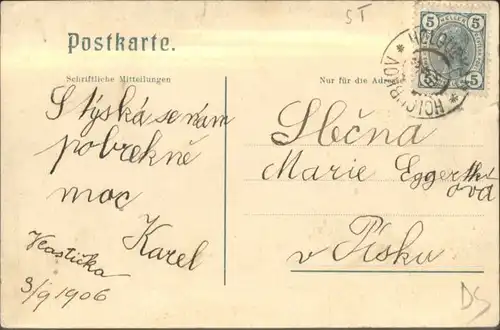 ST
Postkarte.
Schriftliche Mitteilungen
Nur für die Adresse
5 HELLER 5
5 5
HOLOUBKOV
Stýská se nám
po
moc
Karel
Vlastička
3/9 1906
Slečna
Marie Eggerth
ová
v Písku
DS